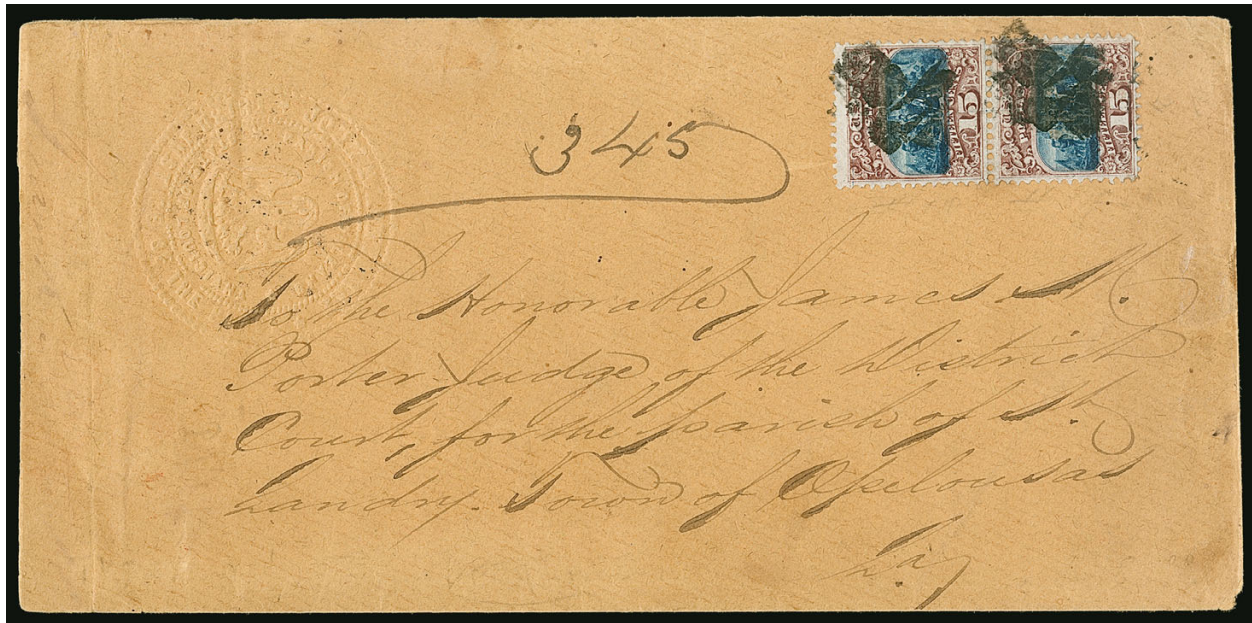 345
To the Honorable James M.
Porter Judge of the District
Court, for the parish of St.
Landry. Town of Opelousas
La
15
15
OF THE